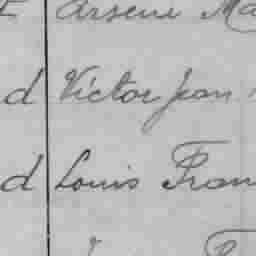 Arsene Ma
d Victor Jean
d Louis Fran